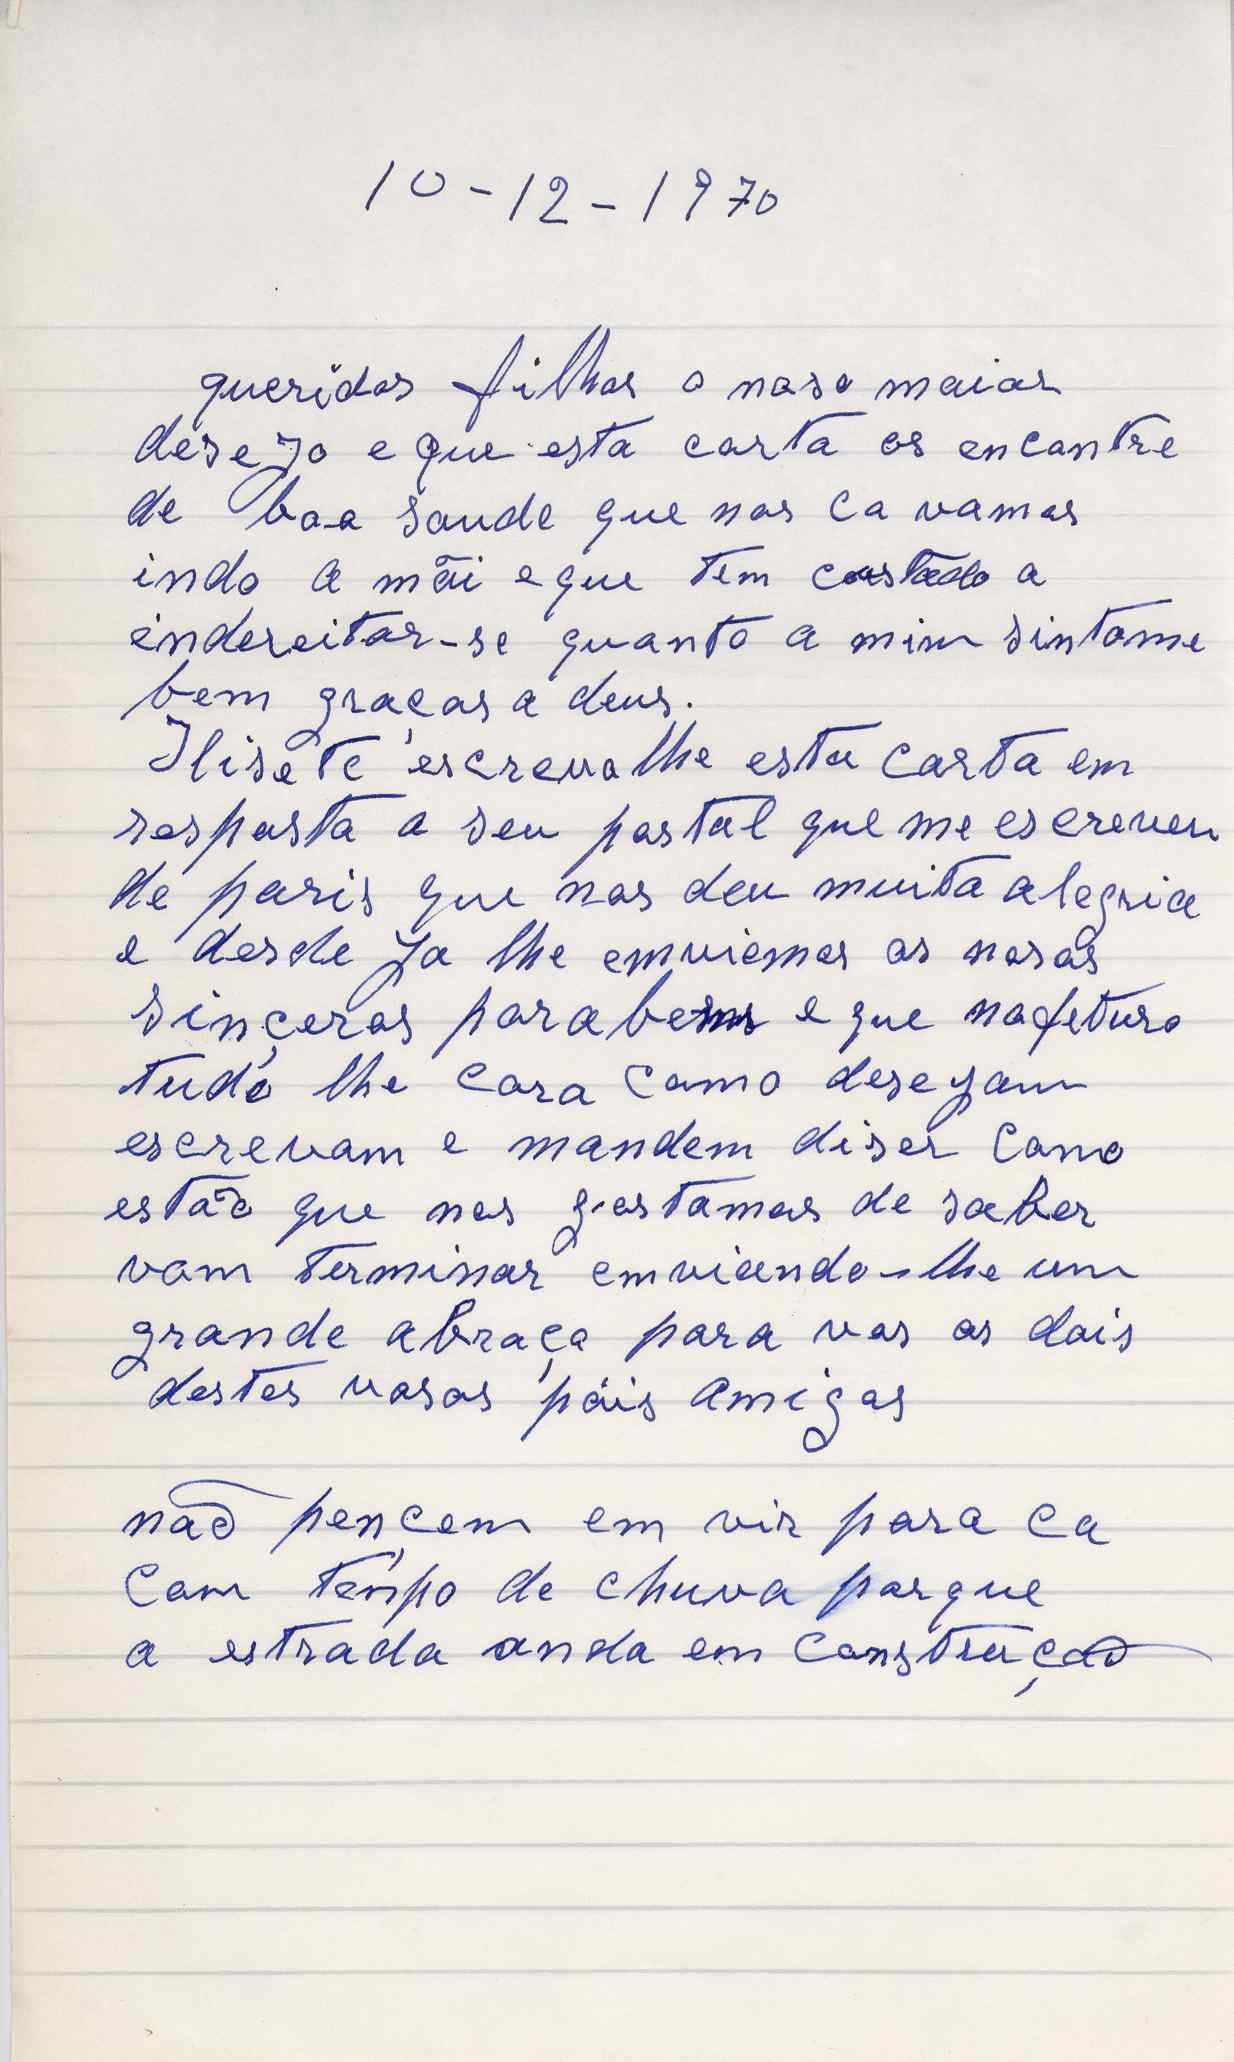 10-12-1970
queridos filhos o noso maior
desejo e que esta carta os encontre
de boa saude que nos ca vamos
indo a mãi e que tem custado a
indereitar-se quanto a mim sintome
bem graças a deus.
Ilisete escrevo lhe esta carta em
resposta a seu postal que me escreveu
de paris que nos deu muita alegria
e desde ja lhe emviemos os nosos
sinçeros parabens e que no feturo
tudo lhe cora como desejam
escrevam e mandem diser como
estão que nos gostamos de saber
vom terminar emviando-lhe um
grande abraço para vos os dois
destes vosos pais amigos
não pençem em vir para ca
com tenpo de chuva porque
a estrada anda em construção